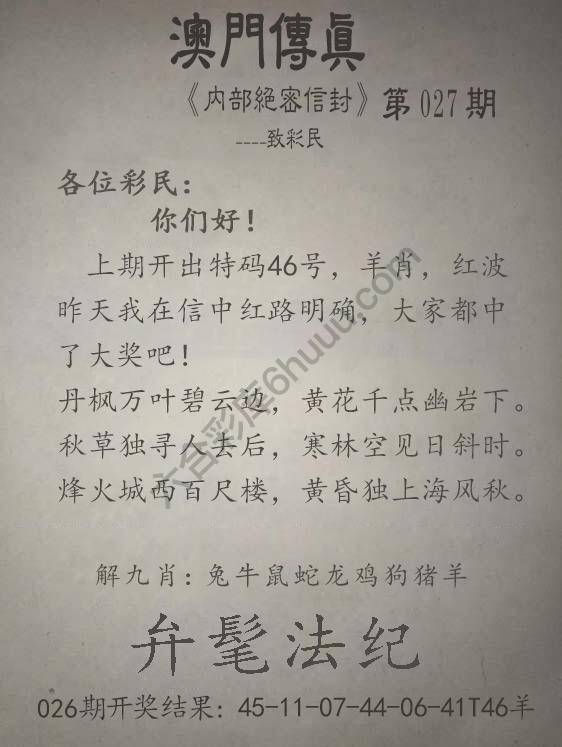 澳門傳真
《内部絕密信封》第027期
----致彩民
各位彩民：
你们好！
上期开出特码46号，羊肖，红波
昨天我在信中红路明确，大家都中
了大奖吧！
丹枫万叶碧云边，黄花千点幽岩下。
秋草独寻人去后，寒林空见日斜时。
烽火城西百尺楼，黄昏独上海风秋。
解九肖：兔牛鼠蛇龙鸡狗猪羊
弁髦法纪
026期开奖结果：45-11-07-44-06-41T46羊
六合彩库6huuu.com